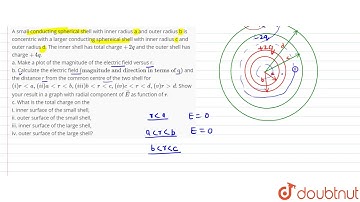 A small conducting spherical shell with inner radius a and outer radius b is
concentric with a larger conducting sphereical shell with inner radius c and
outer radius d. The inner shell has total charge +2q and the outer shell has
charge +4q.
a. Make a plot of the magnitude of the electric field versus r.
b. Calculate the electric field (magnitude and direction in terms of q) and
the distance r from the common centre of the two shell for
(i)r < a, (ii)a < r < b, (iii)b < r < c, (iv)c < r < d, (v)r > d. Show
your result in a graph with radial component of E as function of r.
c. What is the total charge on the
i. inner surface of the small shell,
ii. outer surface of the small shell,
iii. inner surface of the large shell,
iv. outer surface of the large shell?
r<a E = 0
a<r<b E = 0
b<r<c
-2q
+2q
doubtnut